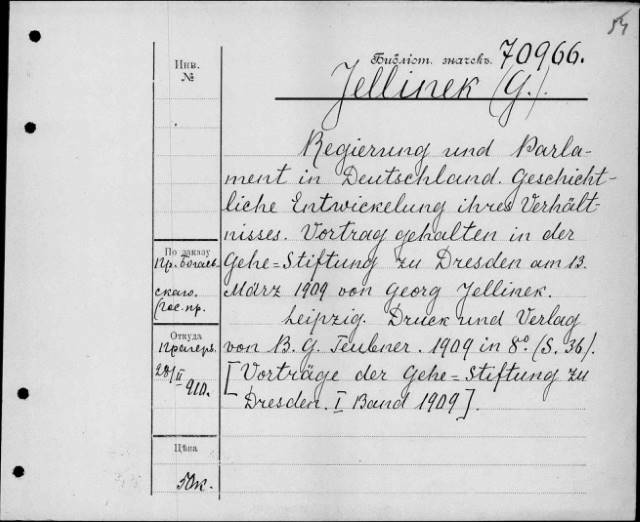 54
Библіот. значекъ. 70966.
Инв.
№
Jellinek (G.).
Regierung und Parla-
ment in Deutschland. Geschicht-
liche Entwickelung ihres Verhält-
nisses. Vortrag gehalten in der
По заказу
Gehe=Stiftung zu Dresden am 13.
Пр. Богаев-
скаго.
März 1909 von Georg Jellinek.
(Гос. пр.
Leipzig. Druck und Verlag
Откуда
von B. G. Teubner. 1909 in 8º. (S. 36).
28/II 910.
[Vorträge der Gehe=Stiftung zu
Dresden. I Band 1909].
Цѣна
50к.